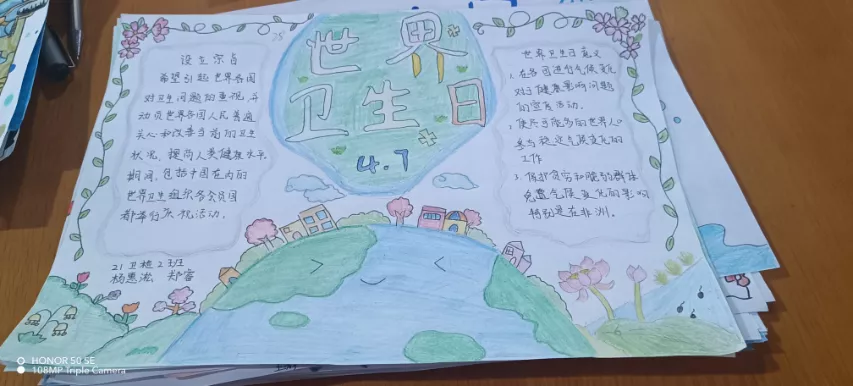 世界
卫生日
4.7
设立宗旨
希望引起世界各国
对卫生问题的重视,并
动员世界各国人民普遍
关心和改善当前的卫生
状况,提高人类健康水平
期间,包括中国在内的
世界卫生组织各会员国
都举行庆祝活动。
世界卫生日意义
1.在各国进行气候变化
对于健康影响问题
的宣传活动。
2.使尽可能多的世界人
参与稳定气候变化的
工作
3.保护贫穷和脆弱群体
免遭气候变化的影响
特别是在非洲。
21卫植2班
杨惠淞 郑睿
HONOR 50 SE
108MP Triple Camera